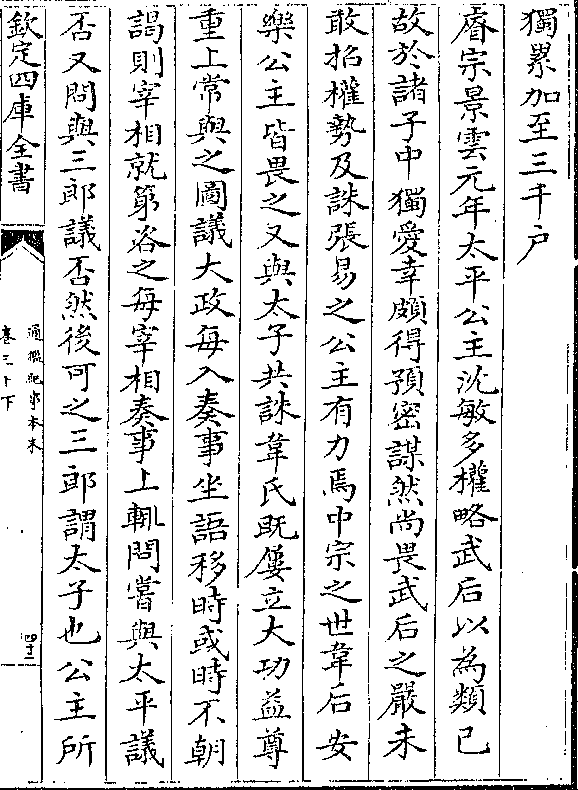 獨累加至三千户
睿宗景雲元年太平公主沈敏多權略武后以為類已
故於諸子中獨愛幸頗得預密謀然尚畏武后之嚴未
敢招權勢及誅張易之公主有力焉中宗之世韋后安
樂公主皆畏之又與太子共誅韋氏既屢立大功益尊
重上常與之圖議大政每入奏事坐語移時或時不朝
謁則宰相就第咨之每宰相奏事上輒問嘗與太平議
否又問與三郎議否然後可之三郎謂太子也公主所
欽定四庫全書
通鑑紀事本末
卷三十下
四十二